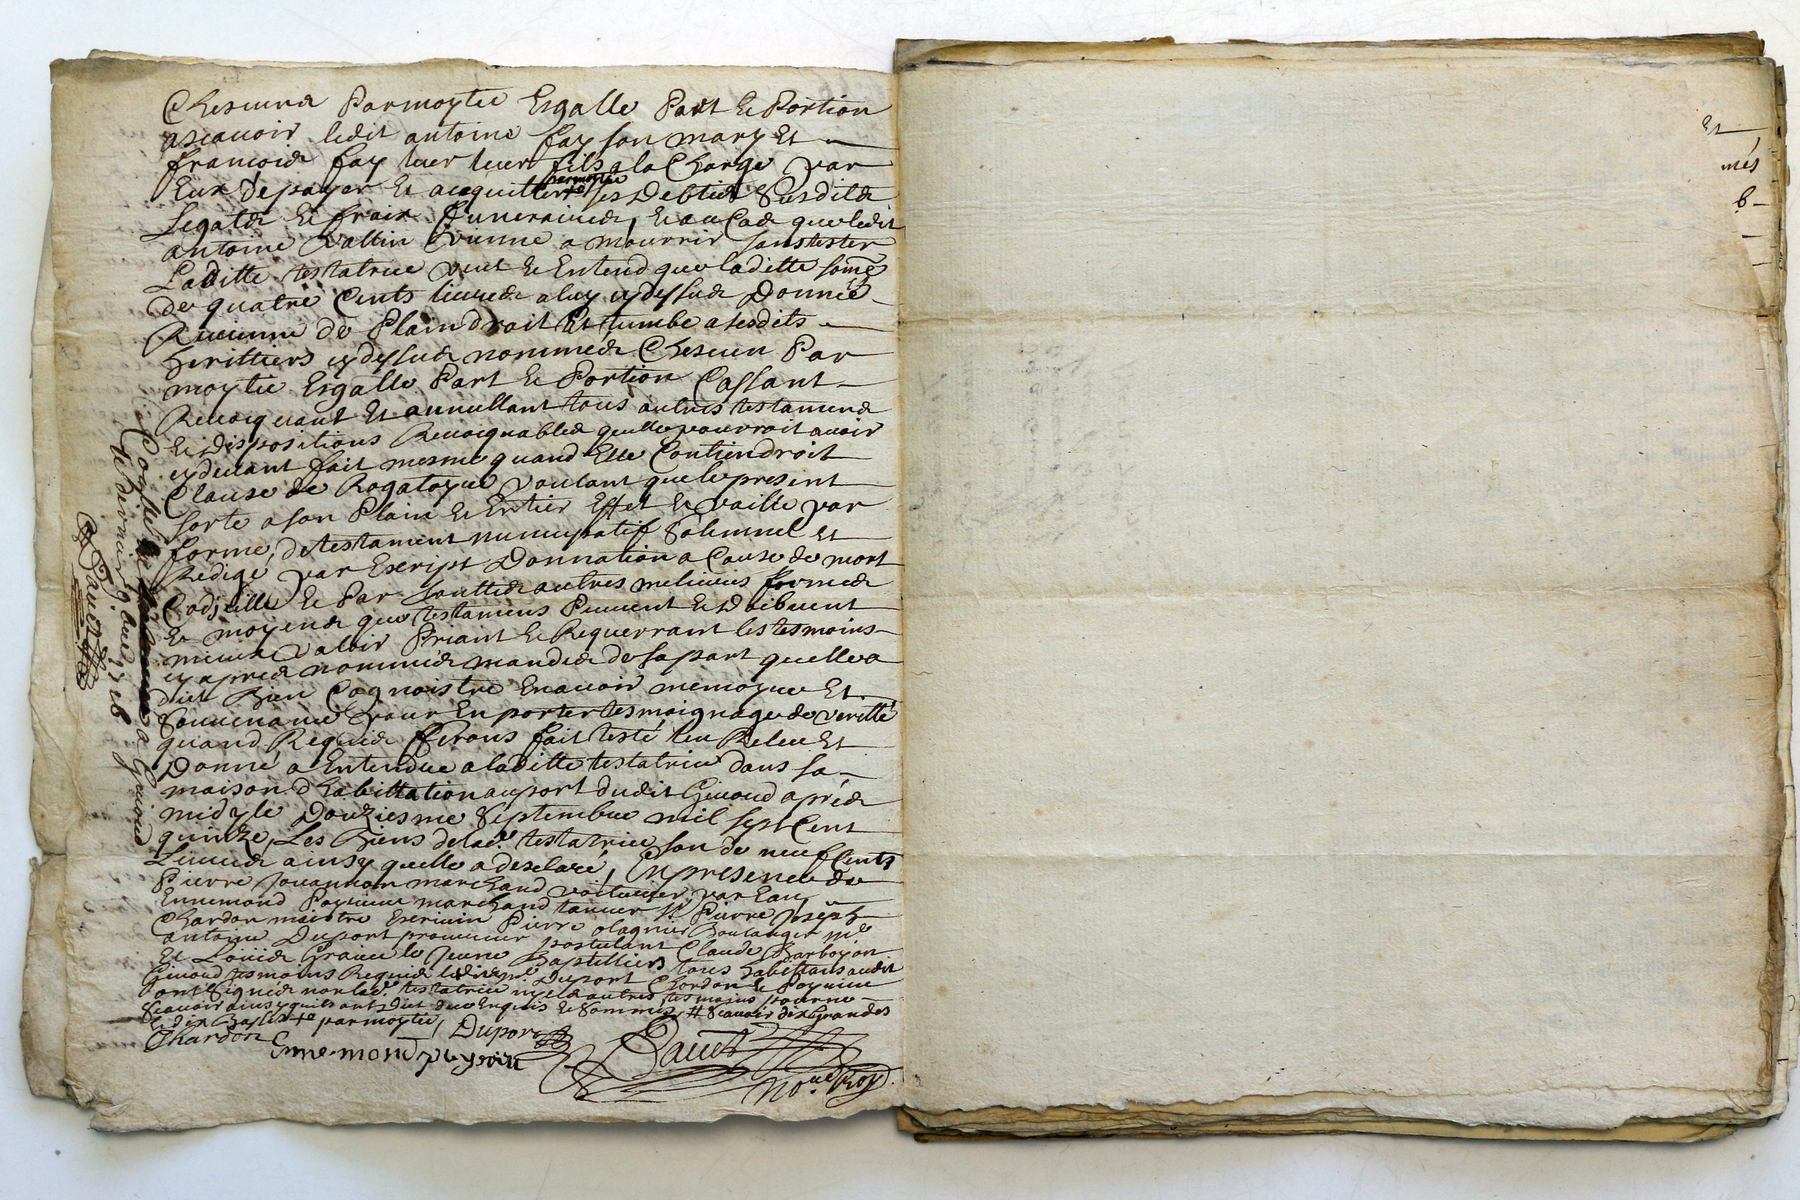 Chescune Par moytie Esgalle Part Et Portion
ascauoir ledit antoine fay son mary Et
francois fay leur fils a la Charge par
Eux de payer Et acquitter par moytie ses Debtes Susdits
Legats Et frais funeraires, Et au Cas que ledit
antoine Vallin Vienne a mourrir sans tester
Laditte testatrice veut Et Entend que laditte somme
de quatre Cents liures a luy cy dessus Donnée
Reuienne de Plain droit Et tumbe a sesdits
heritiers cy dessus nommes Chescun Par
moytie Esgalle Part Et Portion Cassant
Reuocquant Et annullant tous autres testamens
Et Dispositions Reuocquables quelle pourroit auoir
cy deuant fait mesme quand Elle Contiendroit
Clause de Rogatoyre voulant que le present
sorte a son Plain Et Entier Effet Et vaille par
forme de testament nuncupatif Solemnel Et
Redigé par Escript Donnation a Cause de mort
Codicille Et Par touttes autres melieurs formes
Et moyens que testamens Peuuent Et Doibuent
mieux valoir Priant Et Requerrant les tesmoins
cy apres nommés mandes de sa part quelle a
dit Bien Cognoistre En auoir memoyre Et
Souuenance pour En porter tesmoignage de verité
quand Requis seront fait testé leu Releu Et
Donné a Entendre a laditte testatrice dans sa
maison d habittation au port dudit Giuord apres
midy le Douziesme Septembre mil sept Cent
quinze, Les Biens de lad. testatrice son de neuf Cents
Liures ainsy quelle a desclaré, En presence de
Pierre Jouannon marchand voiturier par Eau,
Ennemond Payuin marchand tanneur Sr Pierre Joseph
Chardon maistre Escriuin Pierre olagnier Boulanger me
antoine Duport procureur postulant Claude Barboyon
Et Louis Graue le Jeune tous habittans audit
Giuord tesmoins Requis ledit me Duport Chardon Et Payuin
ont Signés non lad. testatrice ny les autres tesmoins pour ne
Scauoir ainsy quils ont Dict de ce Enquis Et Sommes, # Scauoir dix Grandes
par moytie,
Chardon Duport
Ennemond payuin
Dauet
Nore Roy
Dauet